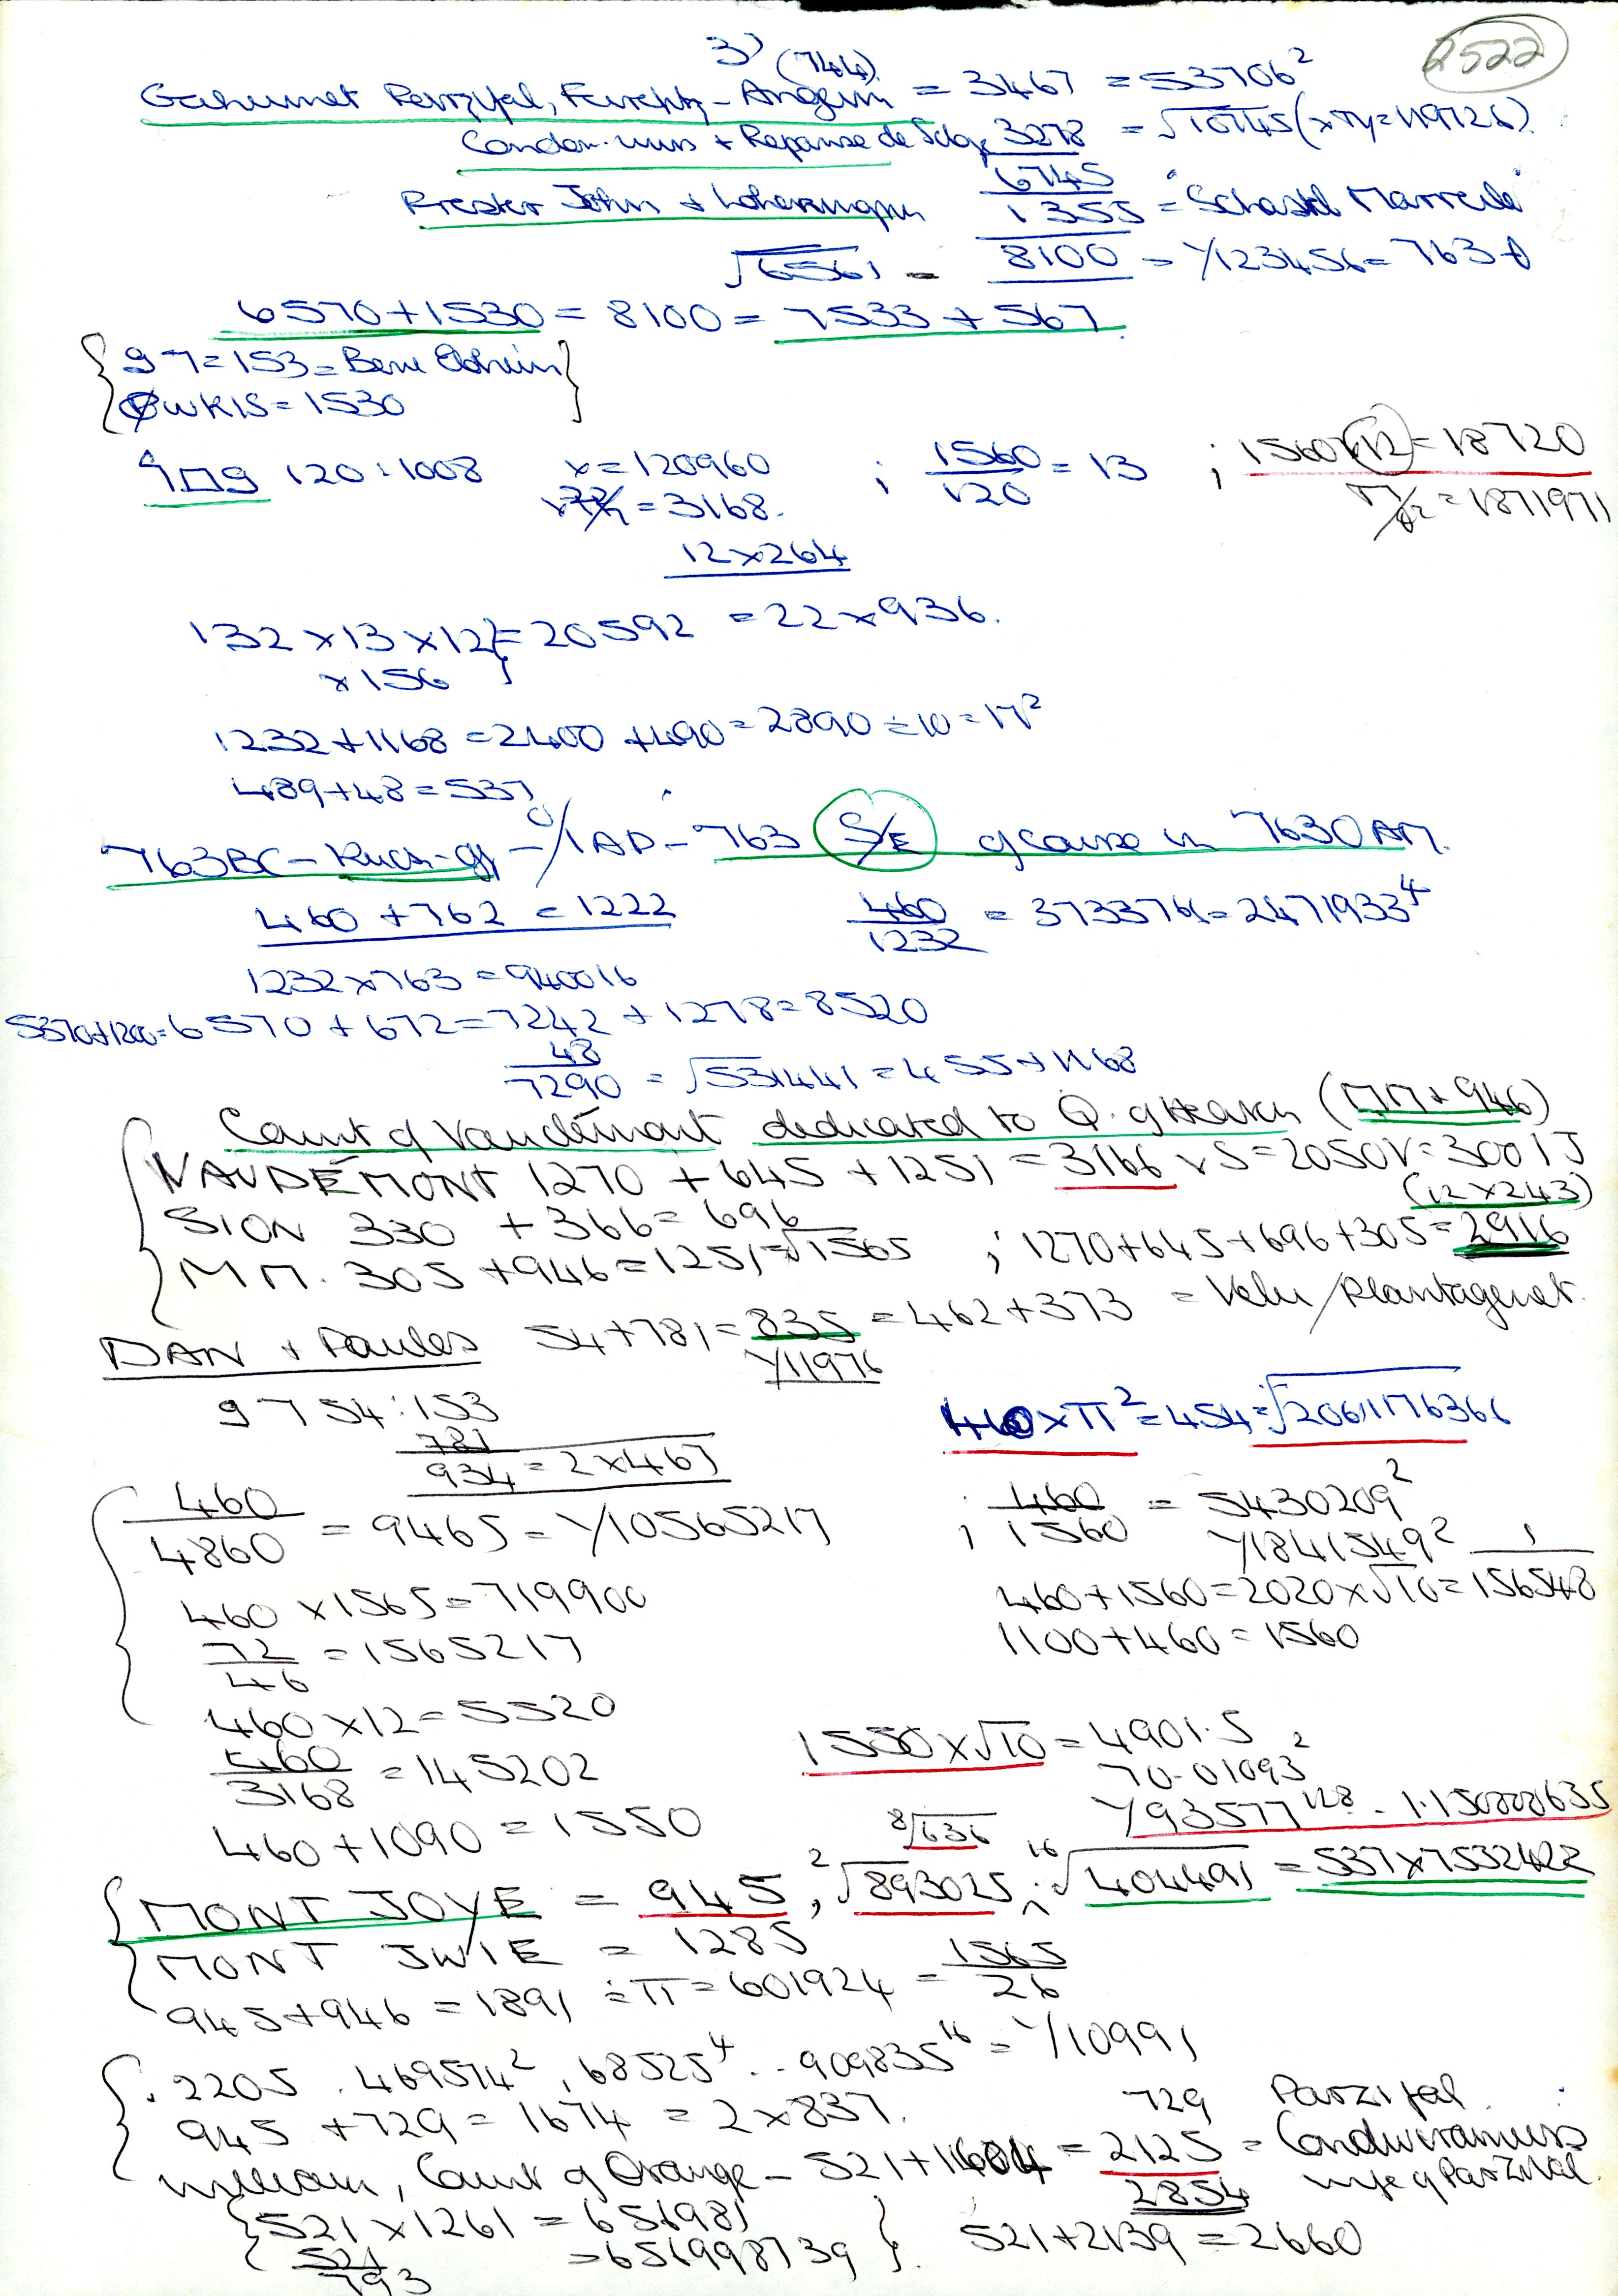 2522
3) (744)
Gahumet Parzifal, Feirefiz-Angevin = 3467 = 53706²
Condwirmurs + Repanse de 3278 = √10745 (xπ=119726)
6745
Prester John + Loherangrin 1355 = "Schastel Marveile"
√6561 = 8100 = 1/123456 = 763
6570+1530 = 8100 = 7533 + 567
97=153=Bene Elohim
ØWKIS=1530
120:1008 x=120960 ; 1560/120 = 13 ; 1560x12=18720
=3168. =1871971
12x264
132 x 13 x 12 = 20592 = 22x936.
x 156
1232+1168=2400 +490=2890÷10=17²
489+48=537
763BC - - 0/1AD - 763 S/E of course is 7630AM.
460 + 762 = 1222 460/1232 = 3733766=2471933⁴
1232x763=940016
5370+1200=6570+672=7242+1278=8520
48
7290 = √531441 = 455+1168
Count of Vaudémont dedicated to Q. of Heaven (MM+946)
VAUDÉMONT 1270 + 645 + 1251 = 3166 vS=2050V=3001J
(12x243)
SION 330 + 366 = 696
MM. 305 + 946 = 1251=√1565 ; 1270+645+696+305=2916
DAN + Paules 54+781=835=462+373 = Velu/Plantagenet
1/11976
9754:153
781
934 = 2x467
460xπ²=454=√2061176366
460/4860 = 9465 = 1/10565217 ; 460/1560 = 5430209²
1/18415492
460x1565=719900 460+1560=2020x√10=1/156548
72/46 = 1565217 1100+460=1560
460x12=5520
460/3168 = 145202 1550x√10=4901.5
70.01093²
460+1090=1550 1/93577¹²⁸ = 1.150888635
⁸√636
MONT JOYE = 945, ²√893025, ¹⁶√404491 = 537x7532422
MONT JWIE = 1285
945+946=1891÷π=601924 = 1565/26
.2205 .469574², 68525⁴..909835¹⁶=1/10991
945 + 729 = 1674 = 2x837. 729 Parzifal
William, Count of Orange - 521+1604 = 2125 = Condwiramurs
2854 wife of Parzival.
521x1261 = 656981
521/793 = 656998739 521+2139=2660